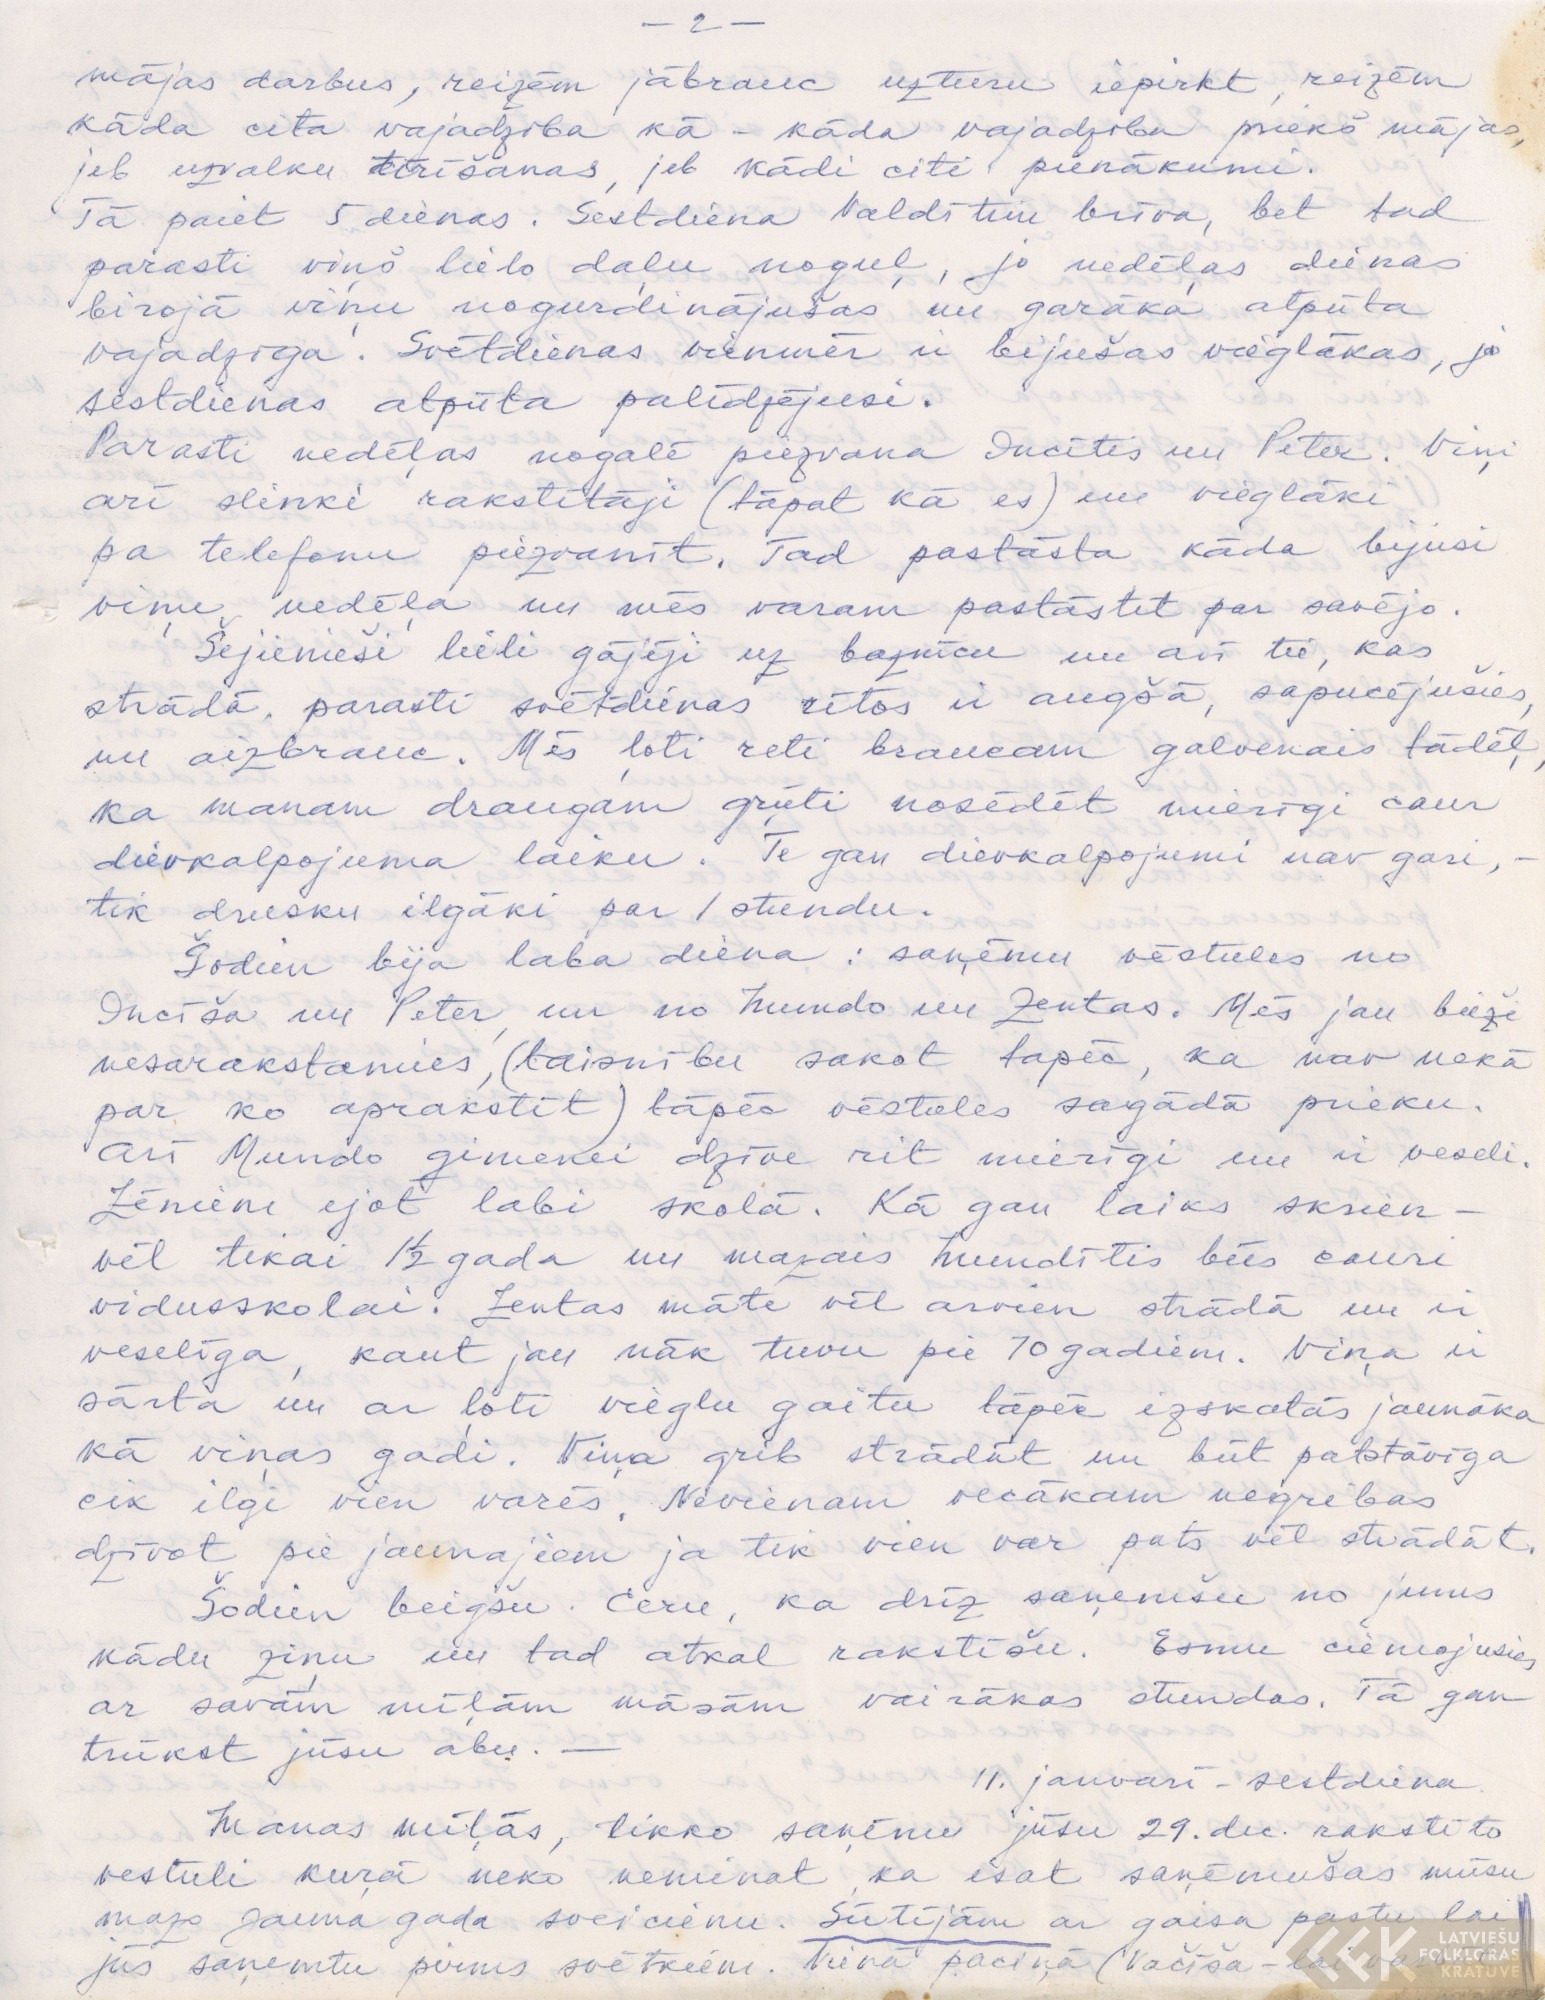 — 2 —
mājas darbus, reizēm jābrauc uzturu iepirkt, reizēm
kāda cita vajadzība kā - kāda vajadzība priekš mājas,
jeb uzvalku tīrīšanas, jeb kādi citi pienākumi.
Tā paiet 5 dienas. Sestdiena Valdītim brīva, bet tad
parasti viņš lielo daļu noguļ, jo nedēļas dienas
birojā viņu nogurdinājušas un garāka atpūta
vajadzīga. Svētdienas vienmēr ir bijušas vieglākas, jo
sestdienas atpūta palīdzējusi.
Parasti nedēļas nogalē piezvana Incītis un Peter. Viņi
arī slinki rakstītāji (tāpat kā es) un vieglāki
pa telefonu piezvanīt. Tad pastāsta kāda bijusi
viņu nedēļa un mēs varam pastāstīt par savējo.
Šejienieši lieli gājēji uz baznīcu un arī tie, kas
strādā, parasti svētdienas rītos ir augšā, sapucējušies,
un aizbrauc. Mēs ļoti reti braucam galvenais tādēļ,
ka manam draugam grūti nosēdēt mierīgi caur
dievkalpojuma laiku. Te gan dievkalpojumi nav gari, -
tik drusku ilgāki par 1 stundu.
Šodien bija laba diena: saņēmu vēstules no
Incīša un Peter, un no Mundo un Zentas. Mēs jau bieži
nesarakstamies, (taisnību sakot tapēc, ka nav nekā
par ko aprakstīt) tāpēc vēstules sagādā prieku.
Arī Mundo ģimenei dzīve rit mierīgi un ir veseli.
Zēniem ejot labi skolā. Kā gan laiks skrien -
vēl tikai 1½ gada un mazais Mundītis būs cauri
vidusskolai. Zentas māte vēl arvien strādā un ir
veselīga, kaut jau nāk tuvu pie 70 gadiem. Viņa ir
sārta un ar ļoti vieglu gaitu tāpēc izskatās jaunāka
kā viņas gadi. Viņa grib strādāt un būt patstāvīga
cik ilgi vien varēs. Nevienam vecākam negribas
dzīvot pie jaunajiem ja tik vien var pats vēl strādāt.
Šodien beigšu. Ceru, ka drīz saņemšu no jums
kādu ziņu un tad atkal rakstīšu. Esmu ciemojusies
ar savām mīļām māsām vairākas stundas. Tā gan
trūkst jūsu abu. —
11. janvarī - sestdiena.
Manas mīļās, tikko saņēmu jūsu 29. dec. rakstīto
vestuli kurā neko neminat, ka esat saņēmušas mūsu
mazo Jauna gada sveicienu. Sūtījām ar gaisa pastu lai
jūs saņemtu pirms svētkiem. Vienā paciņā (Vačīša - lai
LATVIEŠU
FOLKLORAS
KRATUVE